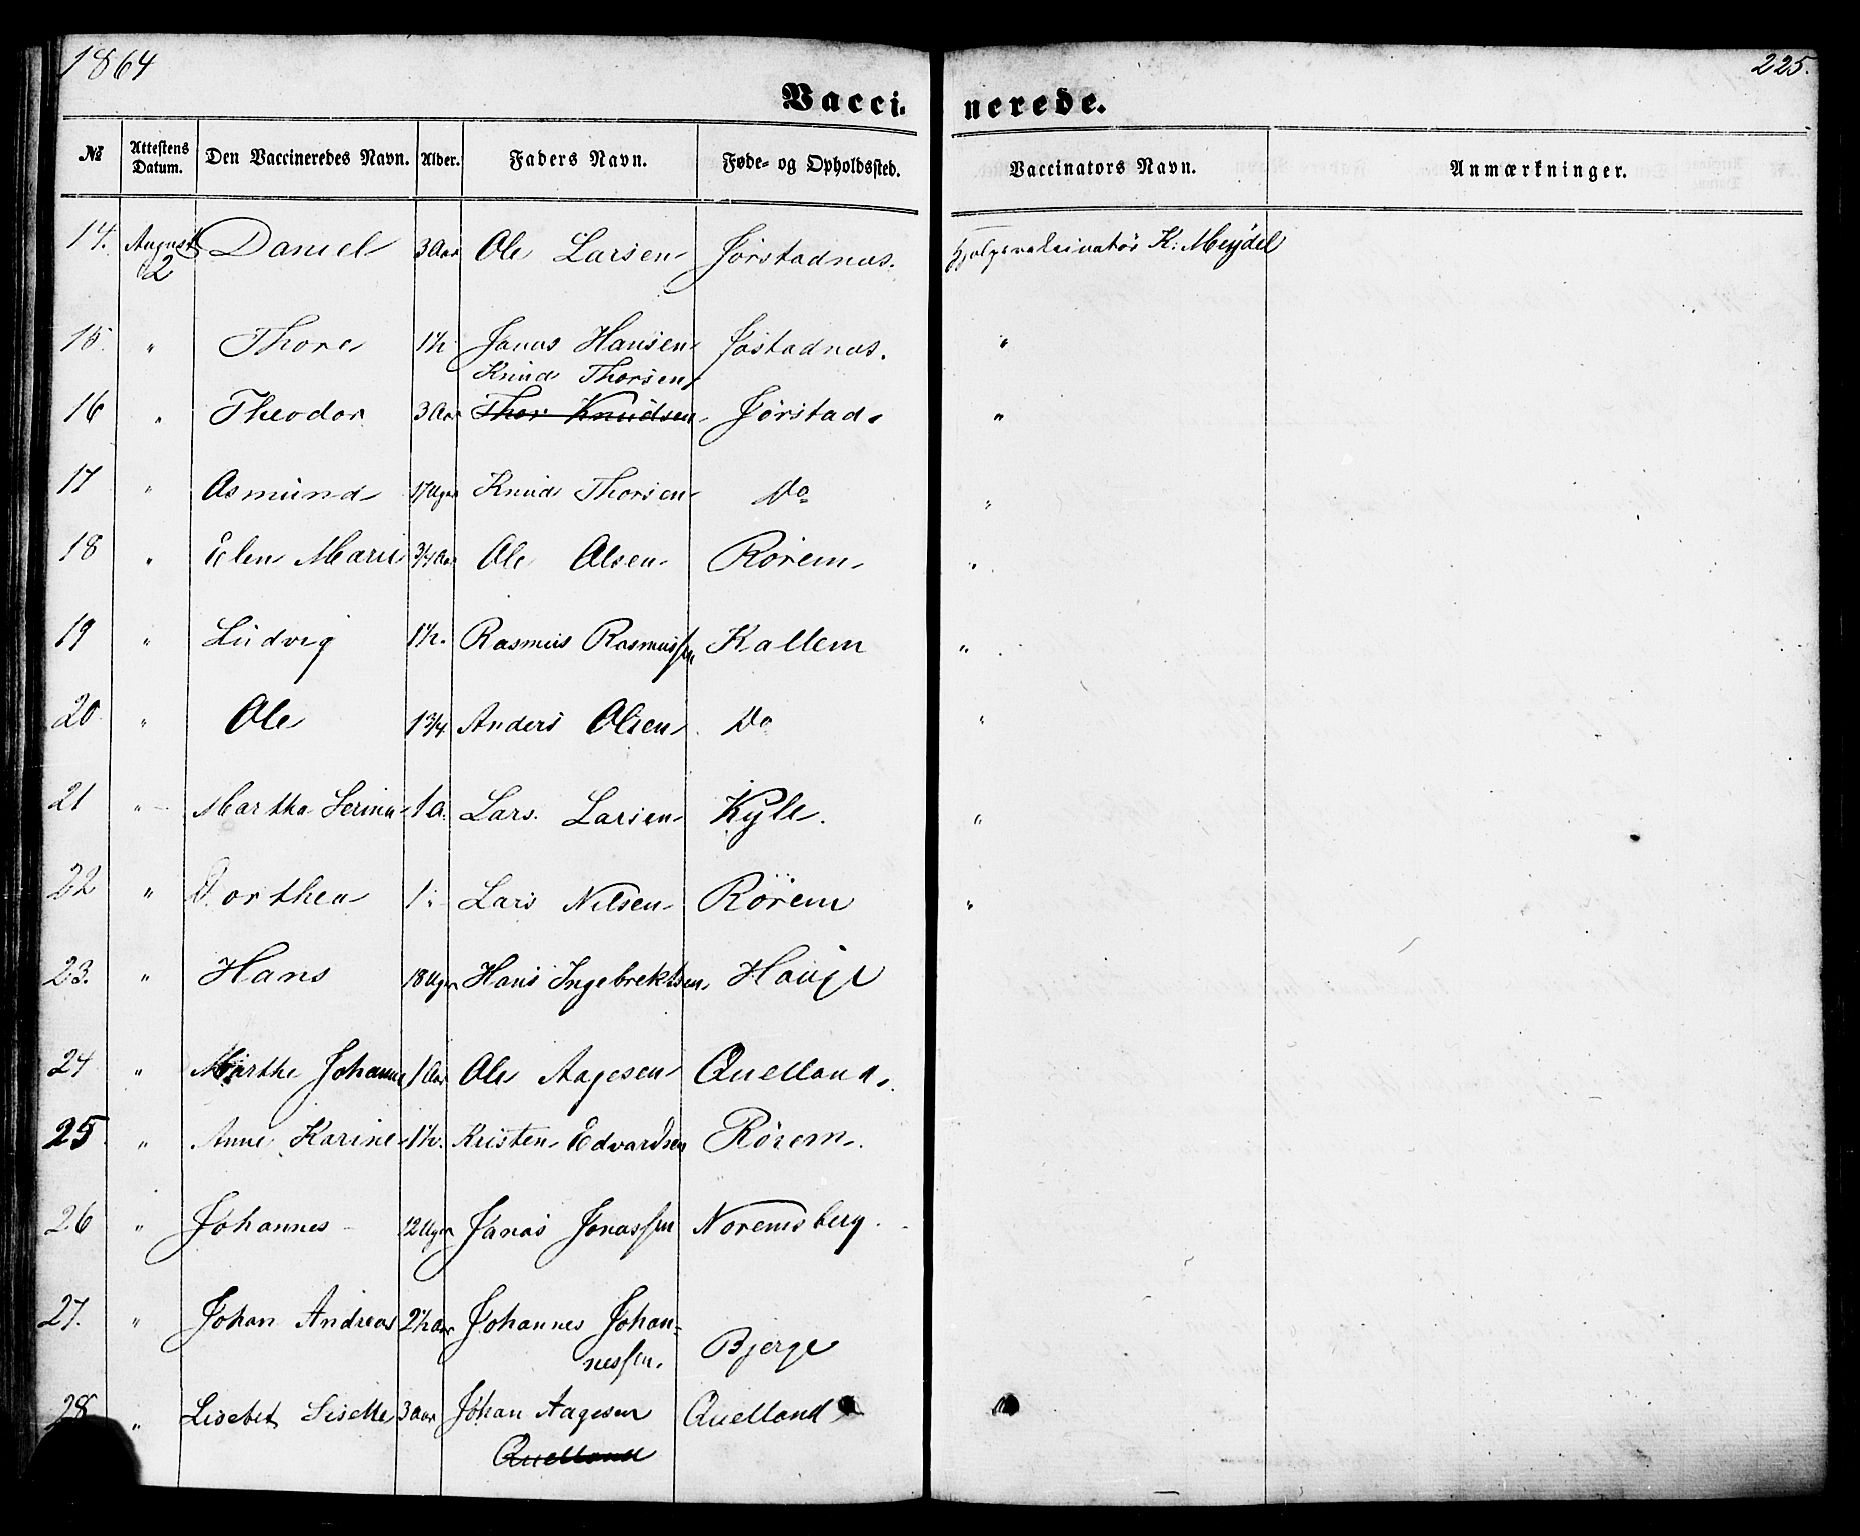 1864
225.
Vacci- nerede.
№ Attestens Datum. Den Vaccineredes Navn. Alder. Faders Navn. Føde- og Opholdssted. Vaccinators Navn. Anmærkninger.
14. August 2 Daniel 3 Aar Ole Larsen Jørstadnæs. Hjelpevaksinatør K: Meydel
15. " Thore 1½ Jonas Hansen Jøstadnæs. "
Knud Thorsen
16 " Theodor 3 Aar Thor Knudsen Jørstad. "
17 " Asmund 17 Uger Knud Thorsen Do "
18 " Elen Marie 3/4 Aar Ole Olsen Rørem "
19 " Ludvig 1½. Rasmus Rasmussen Kallem "
20 " Ole 1 3/4. Anders Olsen Do "
21 " Martha Serina 1 A. Lars. Larsen Kyle. "
22 " Dorthea 1 " Lars Nilsen Rørem "
23. " Hans 18 Uger Hans Ingebrektsen Hauge
24 " Marthe Johanne 1 Aar Ole Aagesen Quelland.
25 " Anne Karine 1½. Kristen Edvardsen Rørem.
26 " Johannes 12 Uger Jonas Jonassen Noremsberg.
27. " Johan Andreas 2½ Aar Johannes Johan-
nessen. Bjerge
28 " Lisebet Siselle 3 Aar Johan Aagesen Quelland
Quelland